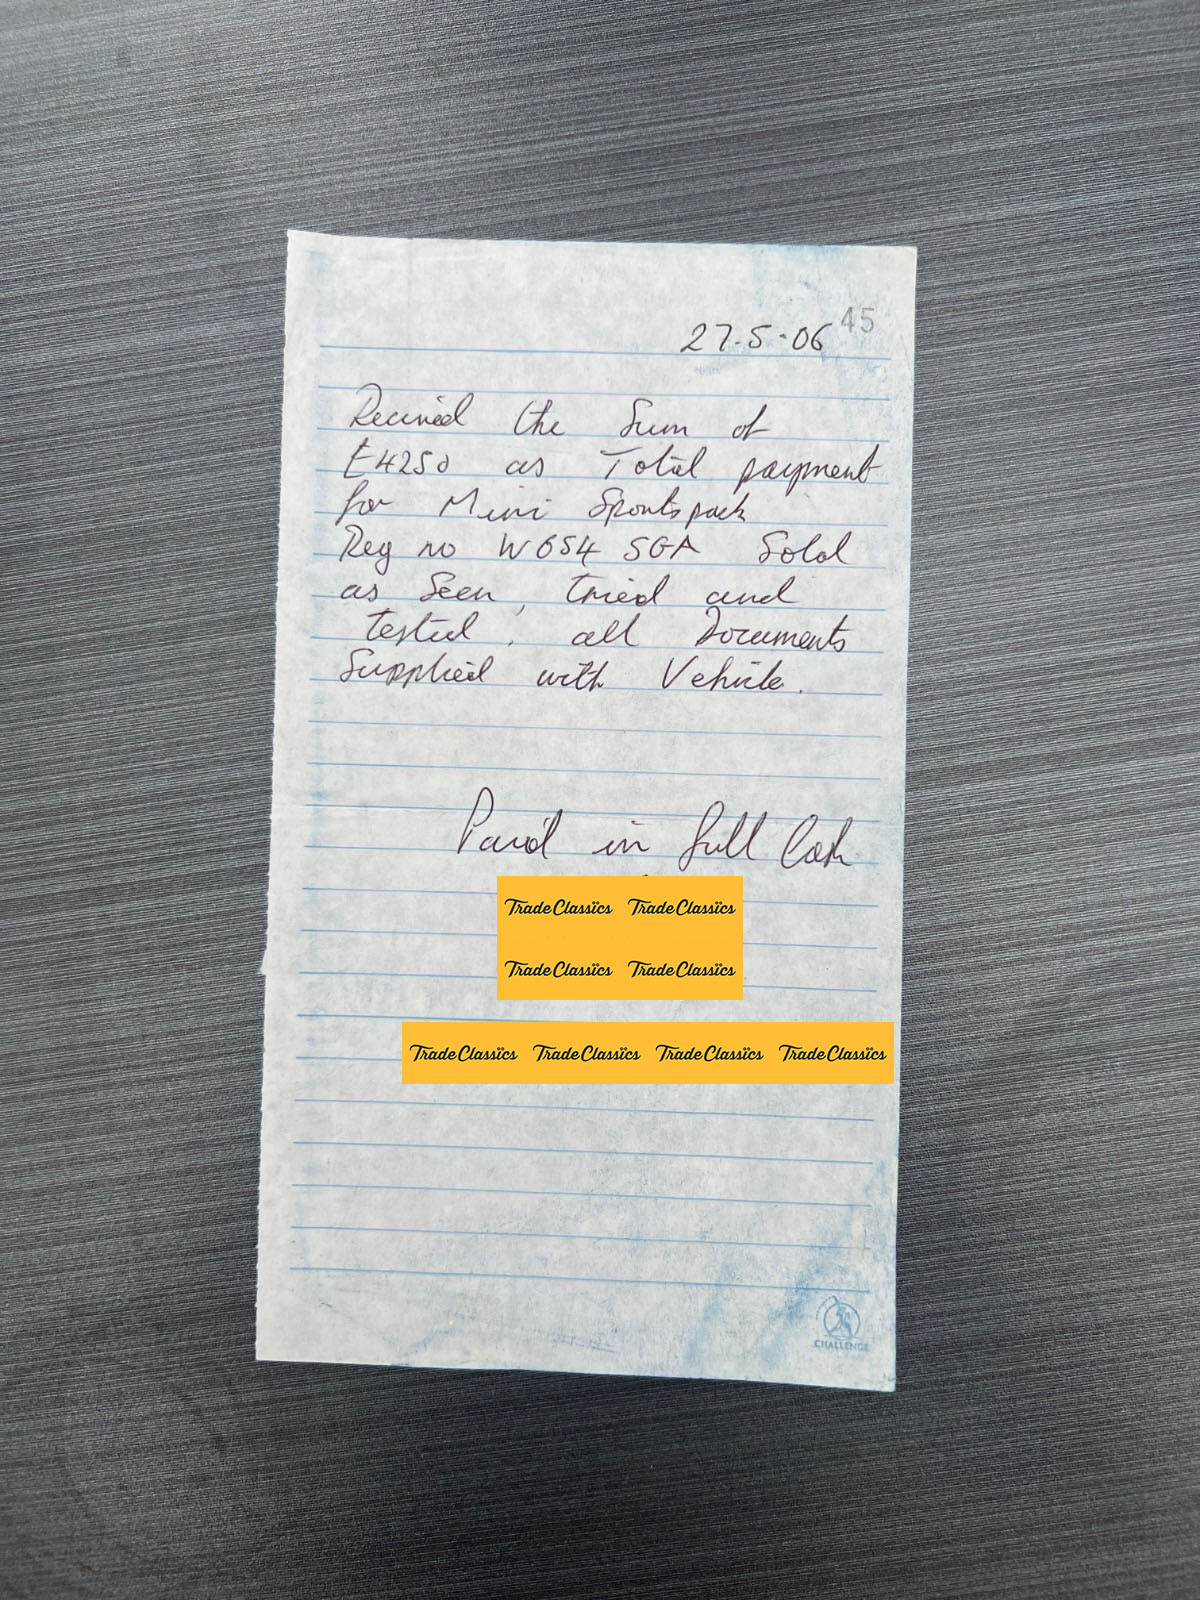 45
27-5-06
Received the Sum of
£4250 as Total payment
for Mini Sportspack
Reg no W654 SGA Sold
as Seen, tried and
tested, all Documents
Supplied with Vehicle.
Paid in full Cash
TradeClassics TradeClassics
TradeClassics TradeClassics
TradeClassics TradeClassics TradeClassics TradeClassics
CHALLENGE